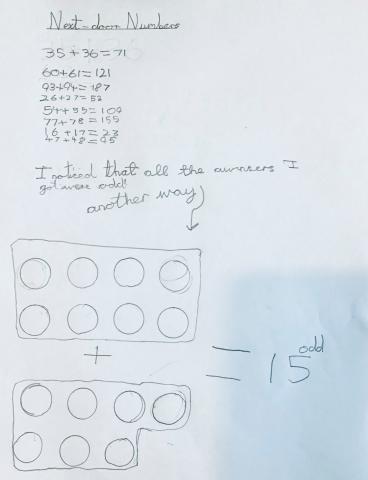 Next-door Numbers
35 + 36 = 71
60+61 = 121
93+94= 187
26+27= 53
54+55= 109
77+78 = 155
16 +17 = 23
47+48= 95
I noticed that all the awnsers I
got were odd!
another way
+
= 15 odd